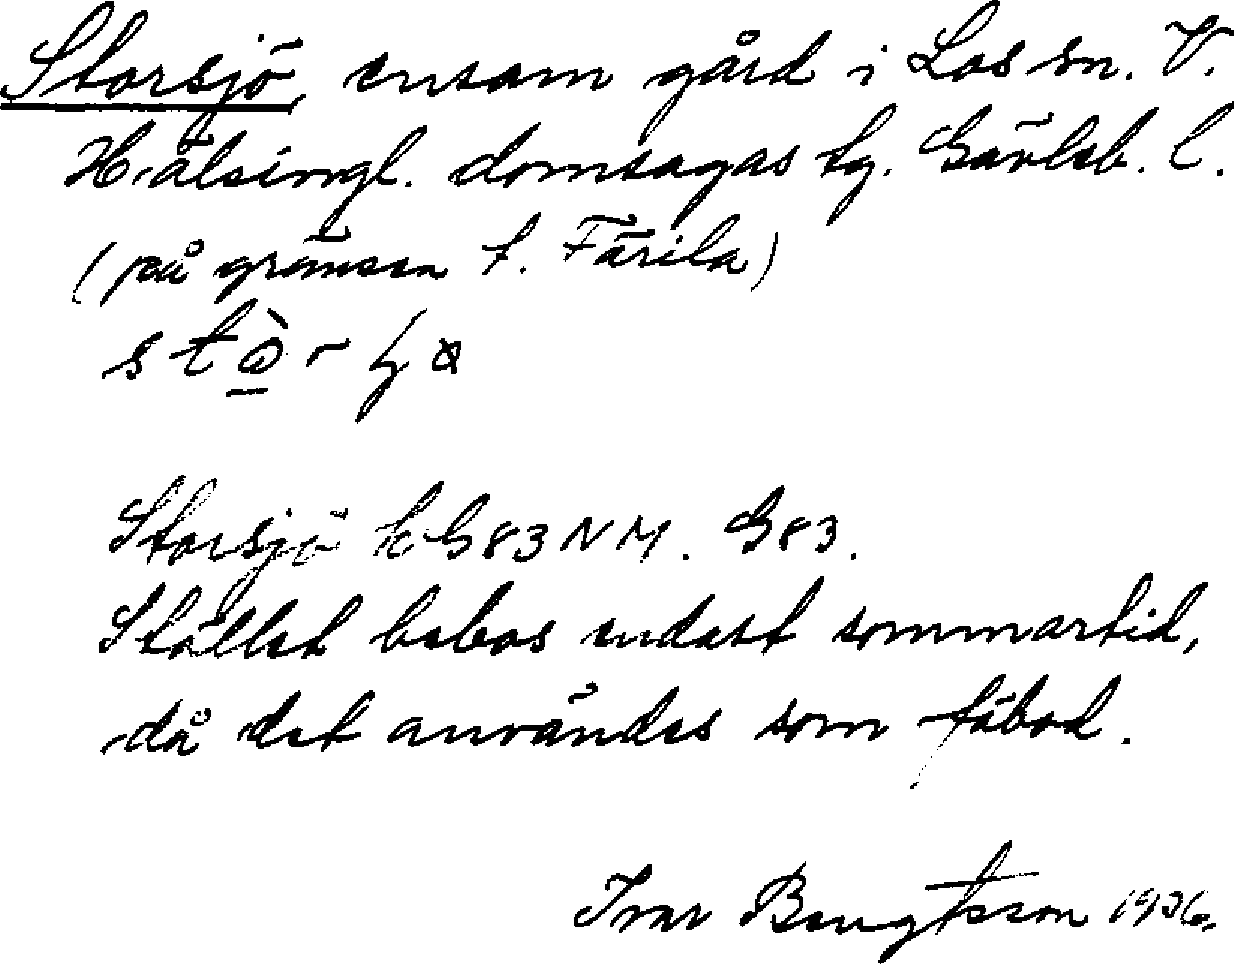 Storsjö, ensam gård i Los sn. V.
Hälsingl. domsagas tg. Gävleb. l.
(på gränsen t. Färila)
Storsjö G83NM. G83.
Stället bebos endast sommartid,
då det användes som fäbod.
Ivar Bengtsson 1936.